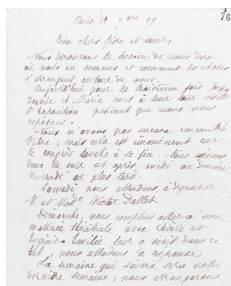 Paris 19 7bre 89
Bien chers frère et sœur,
Nous éprouvons le besoin de vous dire
où nous en sommes et comment les choses
s'arrangent, autour de nous.
Aujourd'hui pour la troisième fois
et Maria sont à leur
d'exposition pendant que nous nous
reposons.
Nous n'avons pas encore rencontré
mais cela est imminent car
le congrès touche à sa fin. Nous
le voir cet après midi ou demain
au plus tard.
Samedi nous attendons à déjeuner
M. et Mad. Victor Dallet.
Dimanche, nous comptons aller à une
matinée théâtrale avec Cécile et
Eugénie. Émilie leur a écrit dans ce
nous attendons la réponse.
La semaine qui suivra sera notre
dernière semaine, nous arrangerons